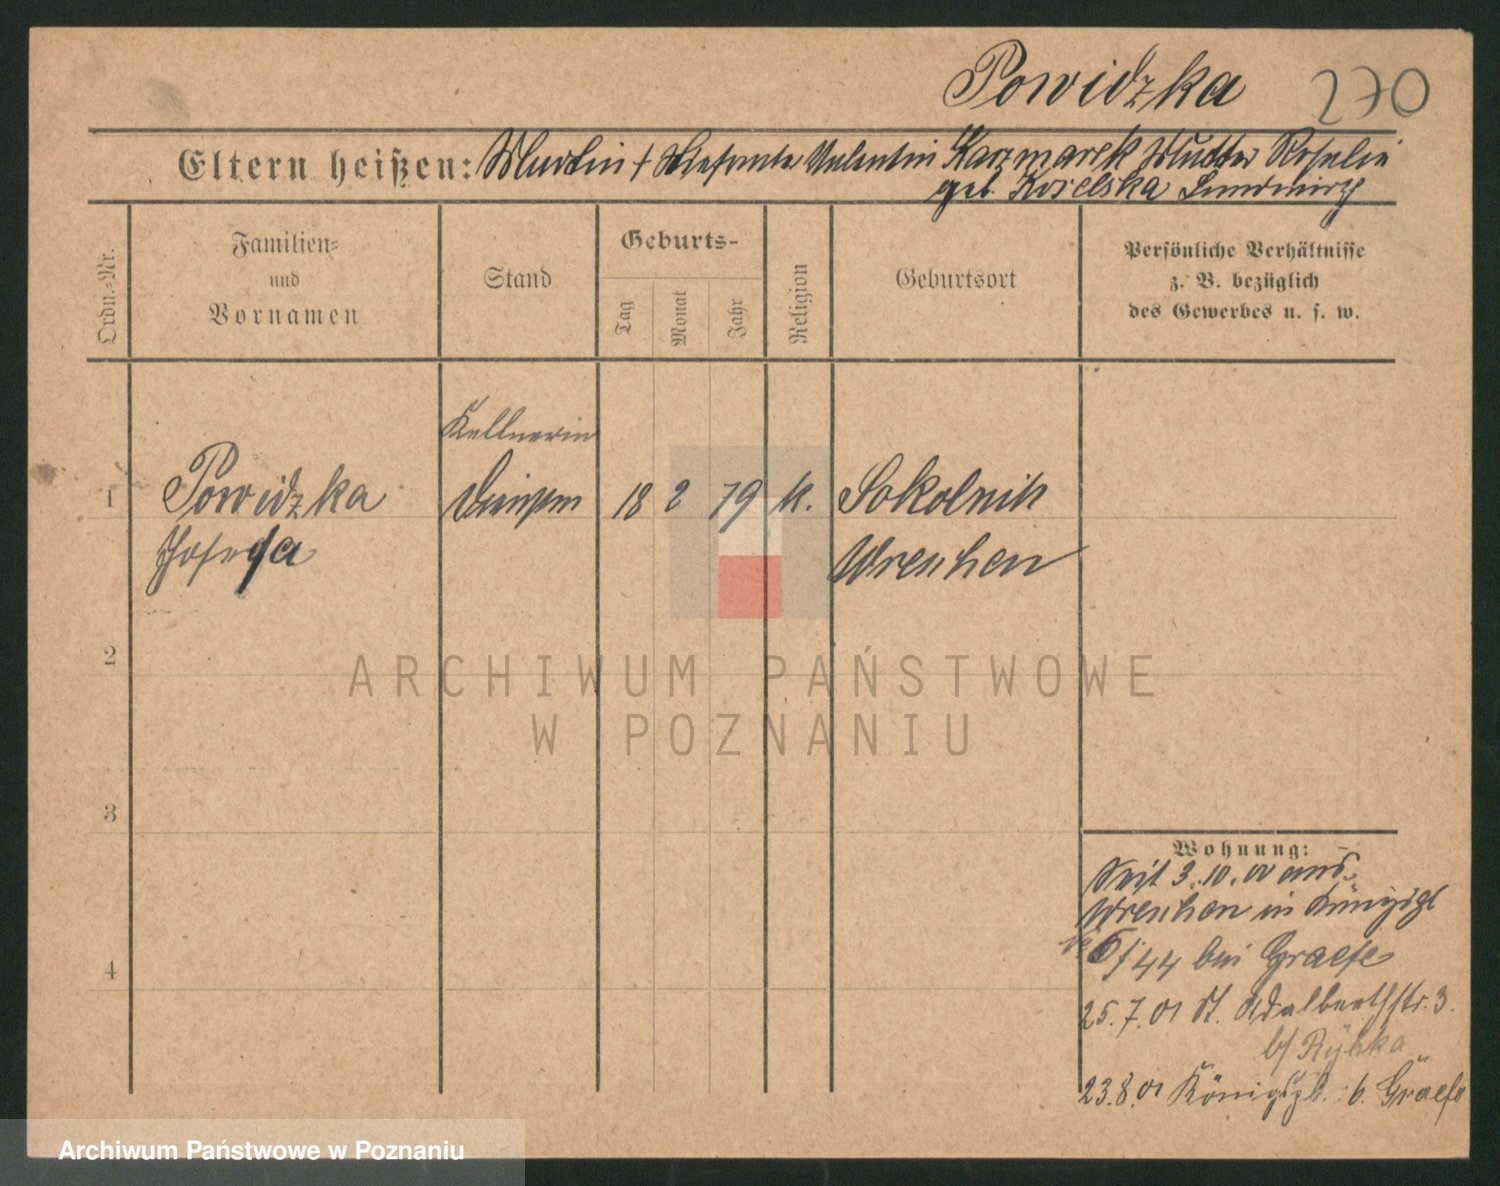 Powidzka 270
Eltern heißen: Martin + Valentin Kaczmarek Mutter Rosalie
geb. Kosielska
Ordn.-Nr.
Familien-
und
Vornamen
Stand
Geburts-
Tag
Monat
Jahr
Religion
Geburtsort
Persönliche Verhältnisse
z. B. bezüglich
des Gewerbes u. s. w.
Kellnerin
1 Powidzka 18 2 79 k. Sokolnik
Josefa Wreschen
2
3
4
Wohnung:
Seit 3.10.00 aus
Wreschen in Königspl
6/44 bei Graefe
25.7.01 St. Adalbertstr. 3.
b/ Rybka
23.8.01 Königspl. b. Graefe
ARCHIWUM PAŃSTWOWE
W POZNANIU
Archiwum Państwowe w Poznaniu